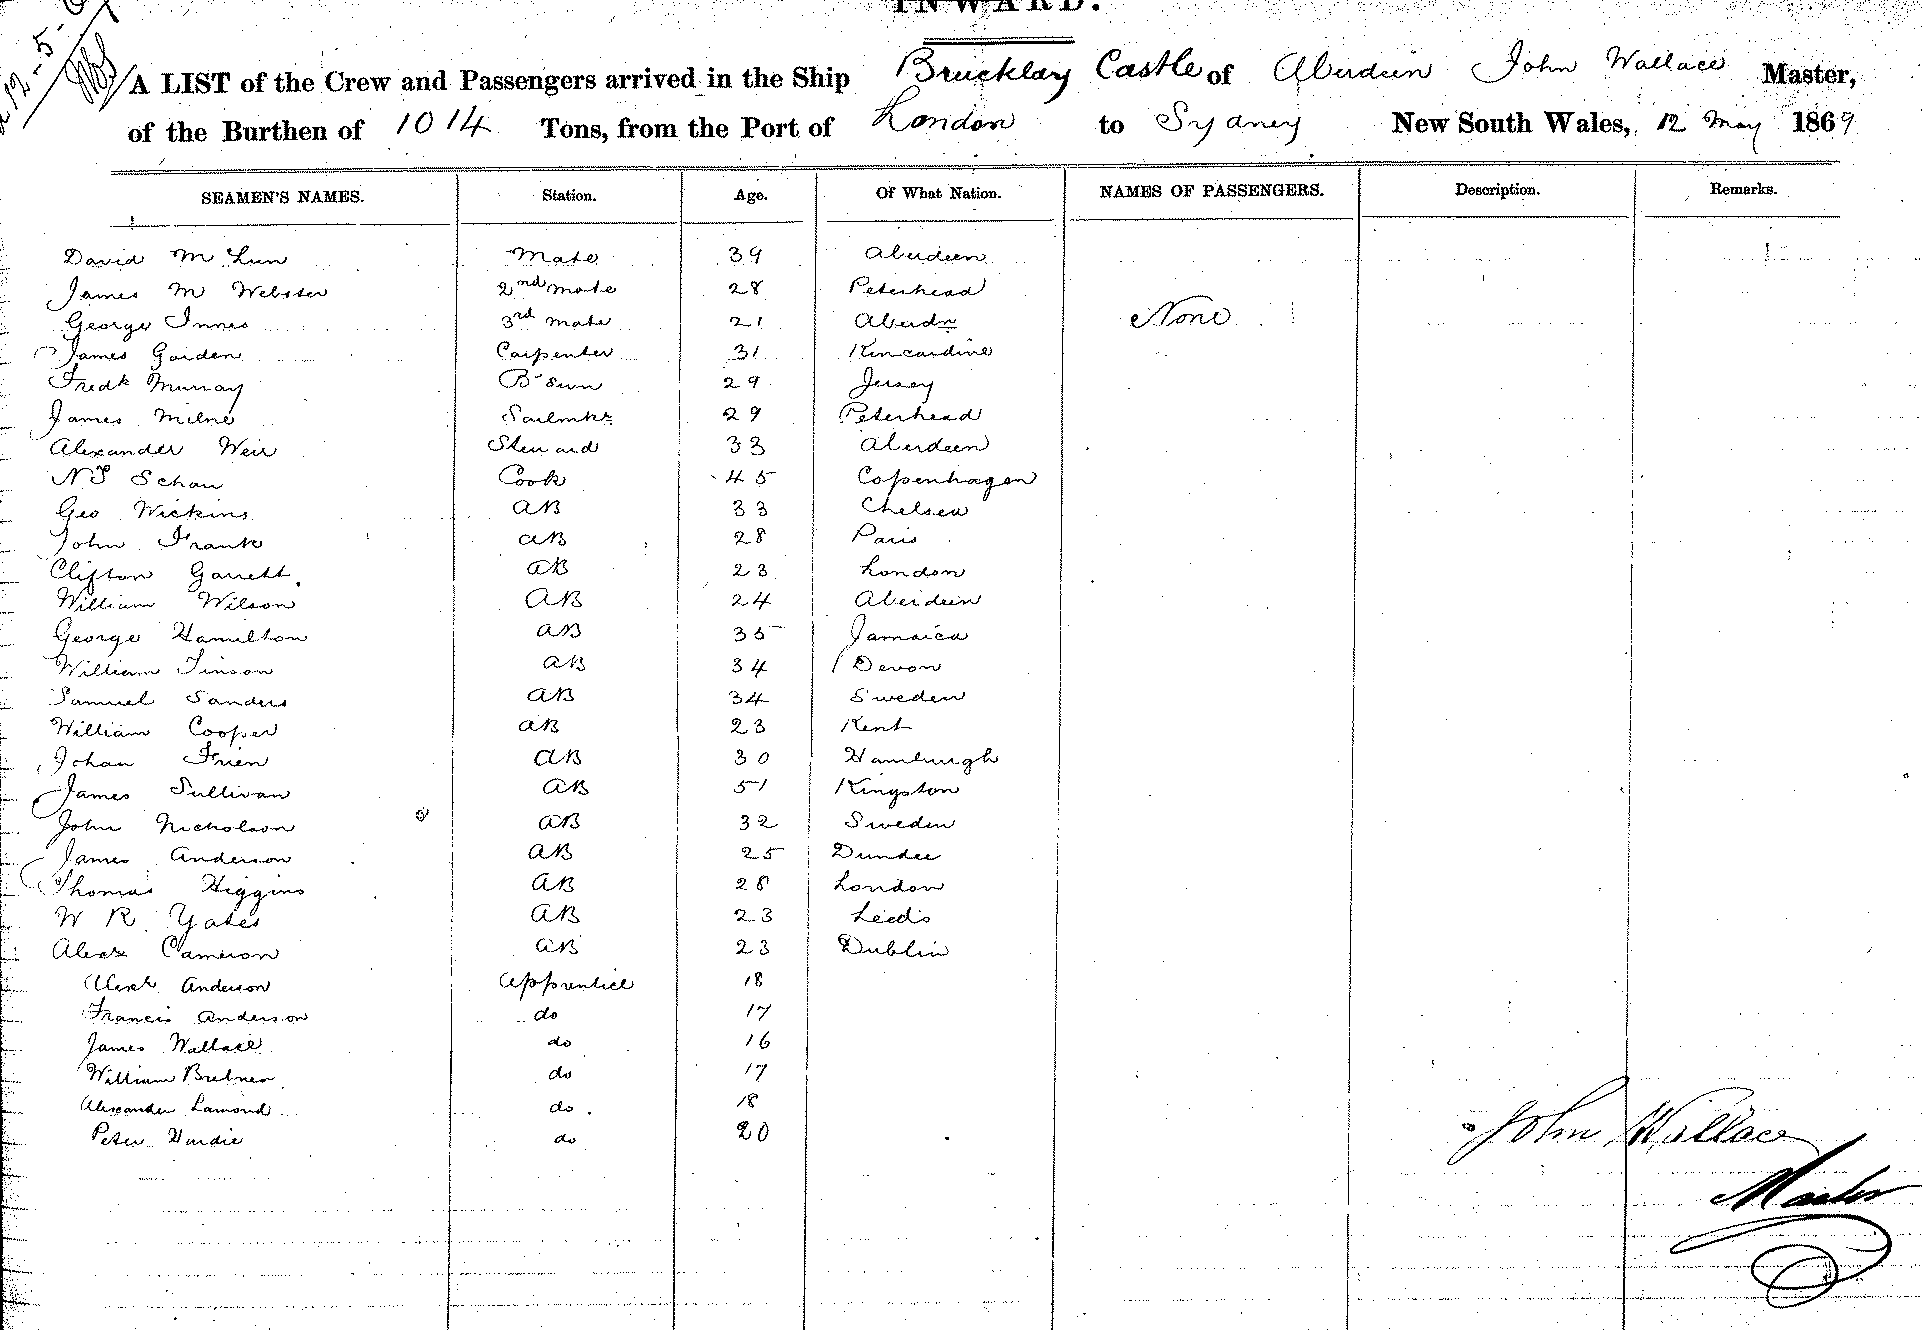 INWARD.
A LIST of the Crew and Passengers arrived in the Ship Brucklay Castle of Aberdeen John Wallace Master,
of the Burthen of 1014 Tons, from the Port of London to Sydney New South Wales, 12 May 1869
SEAMEN'S NAMES. Station. Age. Of What Nation. NAMES OF PASSENGERS. Description. Remarks.
David Mate 39 Aberdeen
James M Webster 2nd Mate 28 Peterhead
George Innes 3rd Mate 21 Aberdn None
James Garden Carpenter 31 Kincardine
Fredk Murray B'Sun 29 Jersey
James Milne Sailmkr 29 Peterhead
Alexander Weir Steward 33 Aberdeen
Schau Cook 45 Copenhagen
Geo Wickins AB 33 Chelsea
John Frank AB 28 Paris
Clifton Garrett AB 23 London
William Wilson AB 24 Aberdeen
George Hamilton AB 35 Jamaica
William Tinson AB 34 Devon
Samuel Sanders AB 34 Sweden
William Cooper AB 23 Kent
Johan Frien AB 30 Hamburgh
James Sullivan AB 51 Kingston
John Nicholson AB 32 Sweden
James Anderson AB 25 Dundee
Thomas Higgins AB 28 London
W R Yates AB 23 Leeds
Alexr Cameron AB 23 Dublin
Alexr Anderson Apprentice 18
Francis Anderson do 17
James Wallace do 16
William Brebner do 17
Alexander Lamond do 18
Peter Hardie do 20
John Wallace
Master